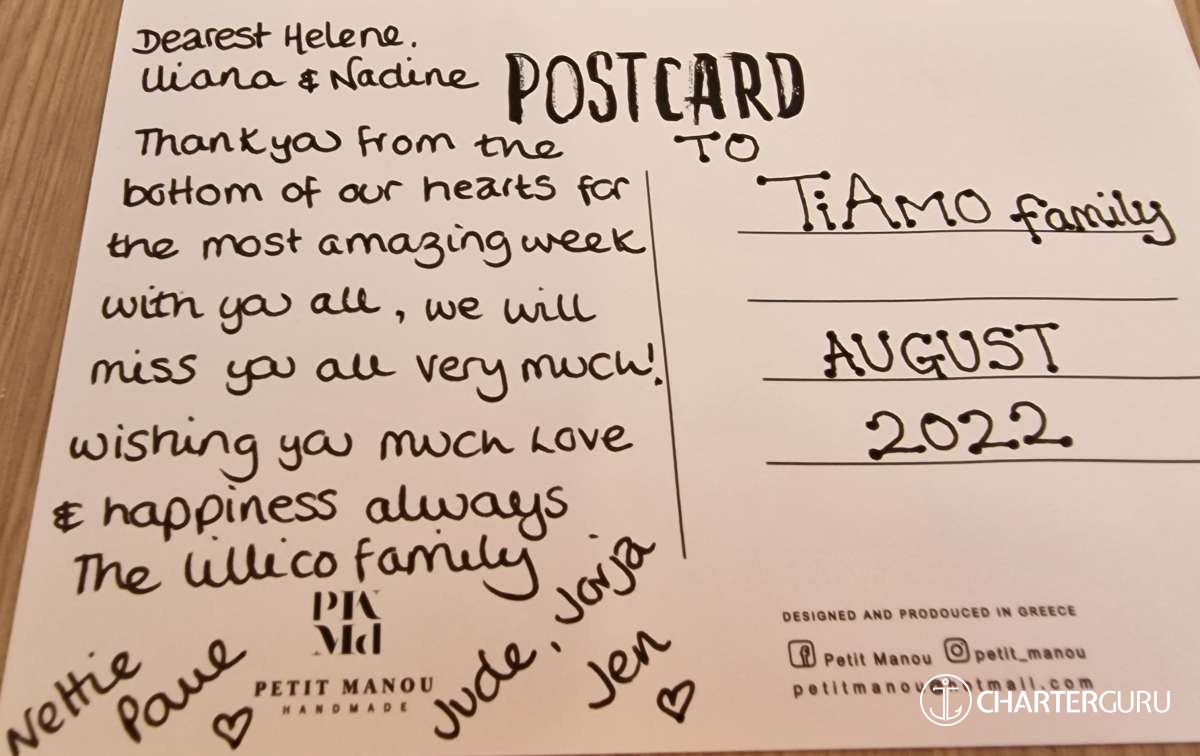 Dearest Helene.
Uiana & Nadine
POSTCARD
Thank you from the
bottom of our hearts for
the most amazing week
with you all, we will
miss you all very much!
wishing you much Love
& happiness always
The Lillico family
Nettie
Paul
Jude, Jorja
Jen
PTK
MD
PETIT MANOU
HANDMADE
TO
TiAMO family
AUGUST
2022
DESIGNED AND PRODOUCED IN GREECE
Petit Manou petit_manou
CHARTERGURU